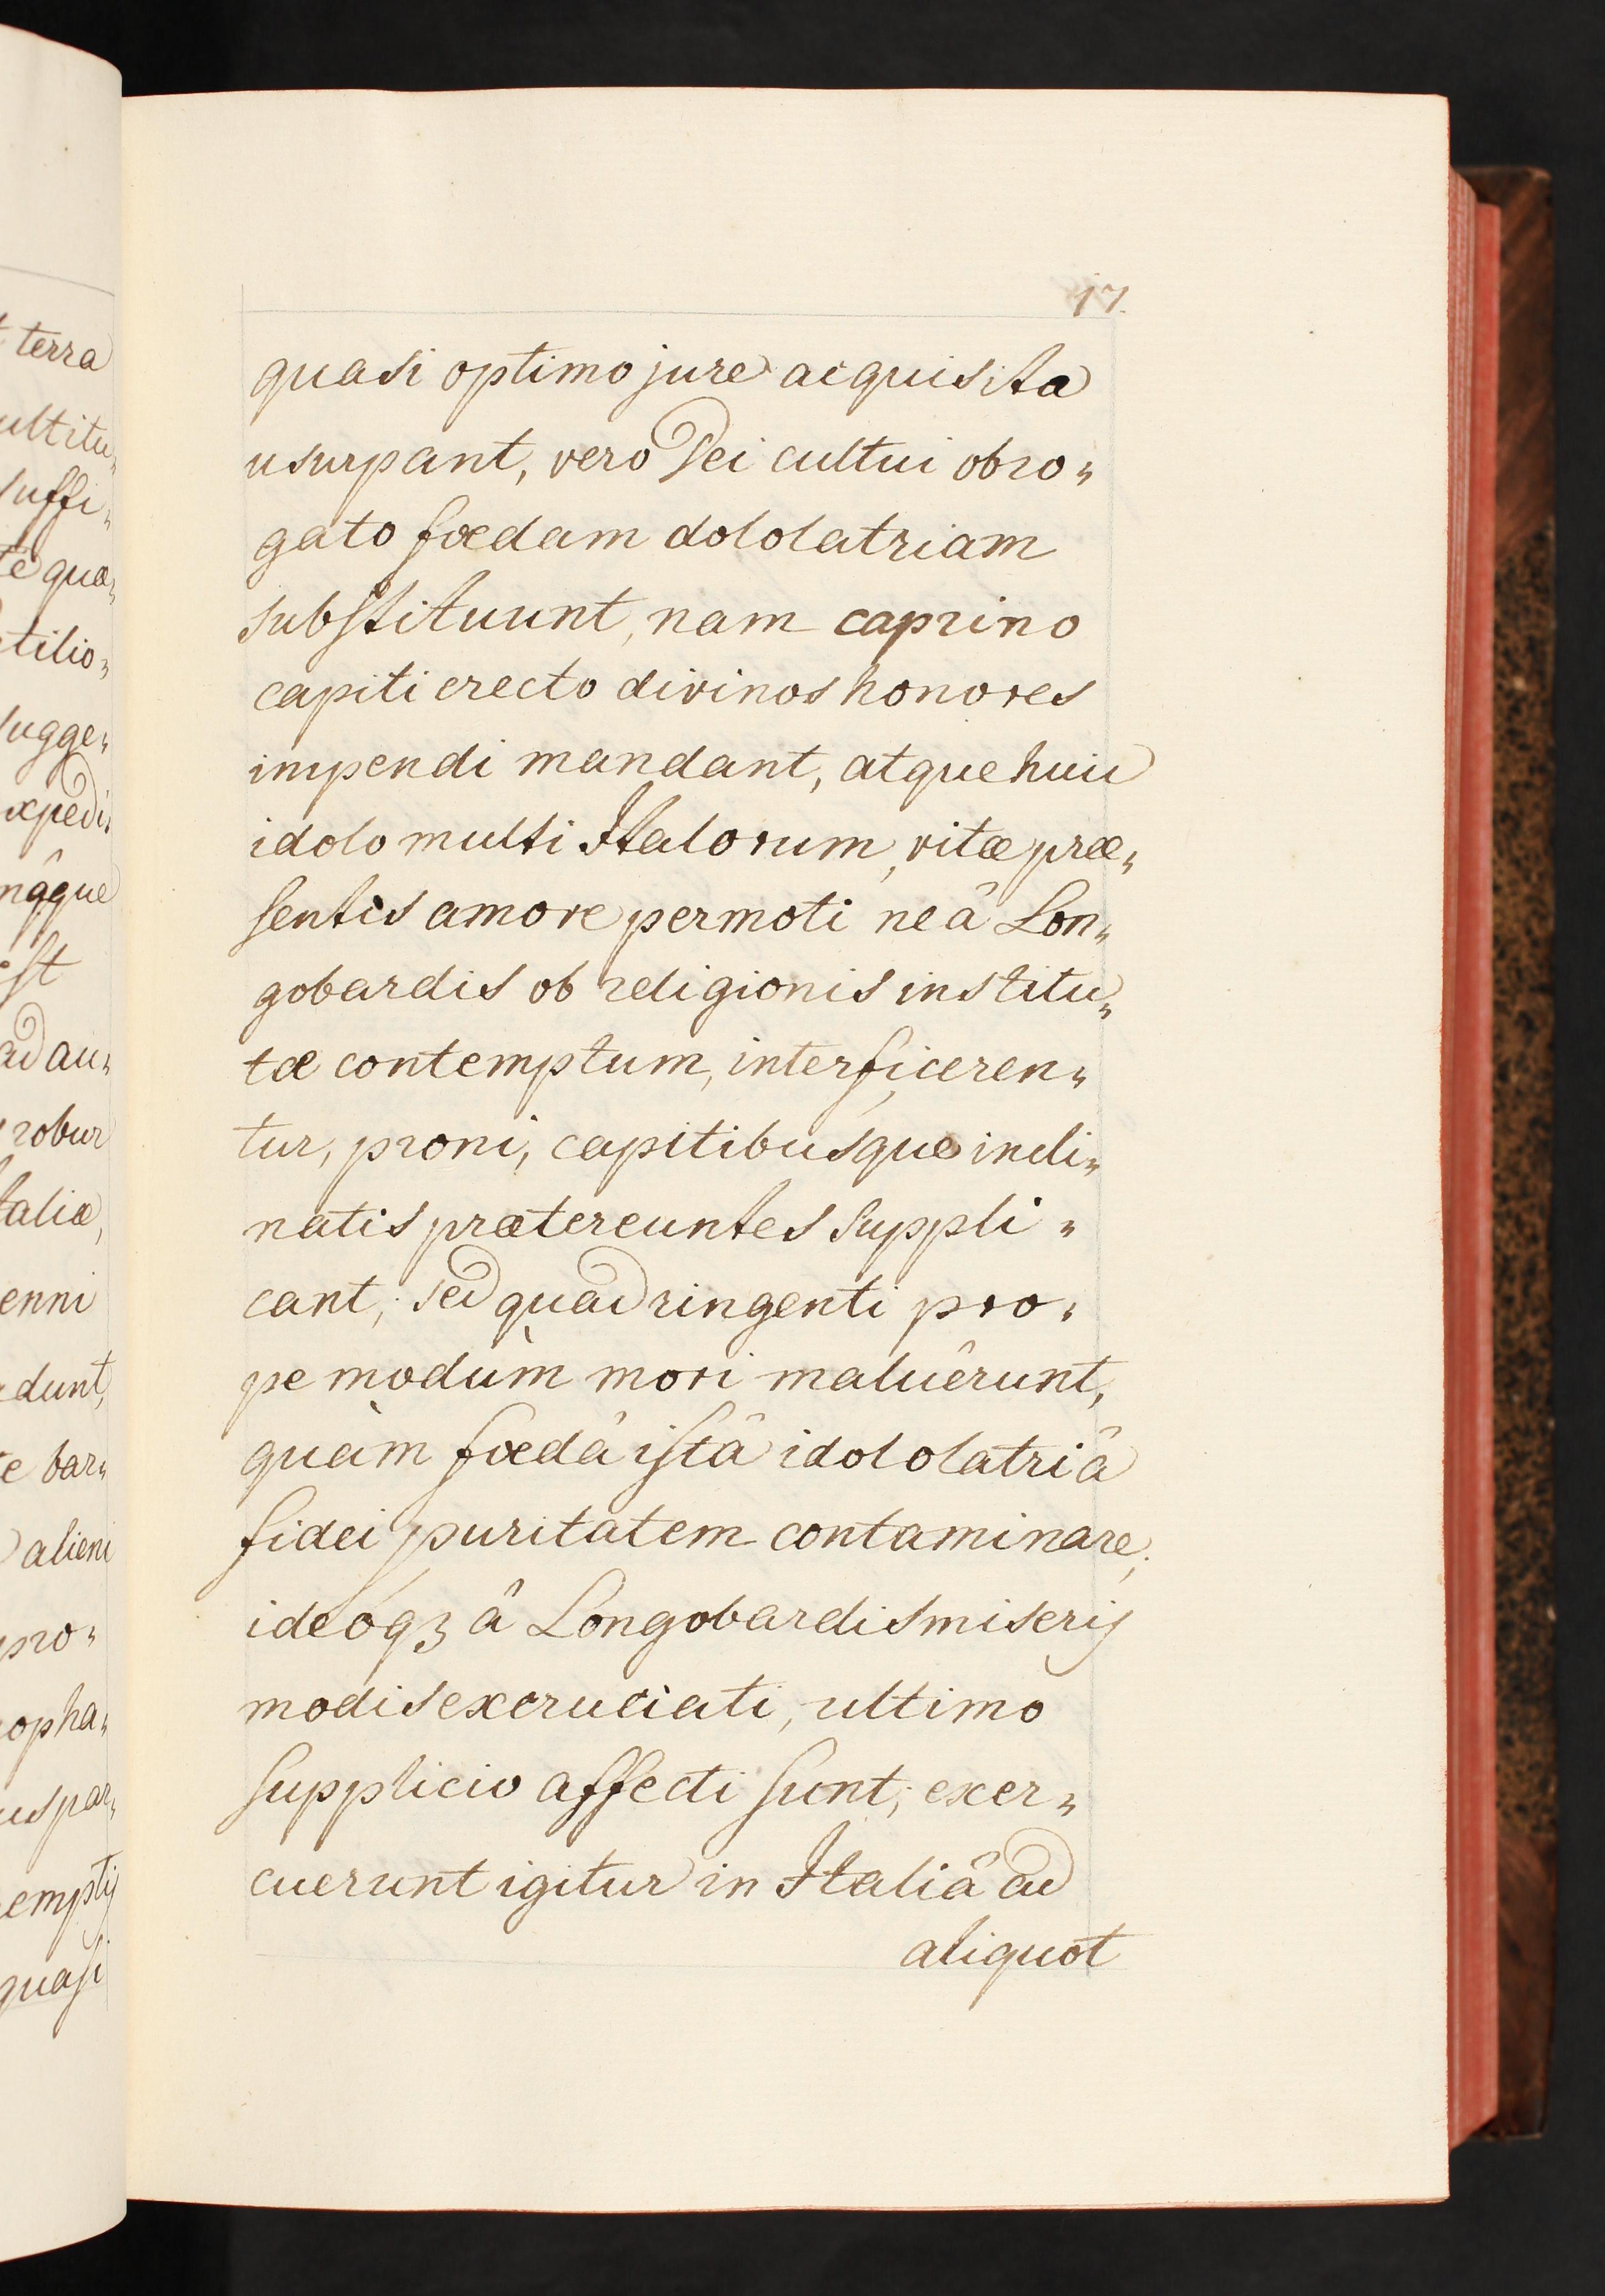 17.
quasi optimo jure acquisita
usurpant, vero Dei cultui obro„
gato fœdam dololatriam
substituunt, nam caprino
capiti erecto divinos honores
impendi mandant, atque huic
idolo multi Italorum, vitæ præ„
sentis amore permoti ne â Lon„
gobardis ob religionis institu„
tæ contemptum, interficeren„
tur, proni, capitibusque incli„
natis prætereuntes suppli„
cant; sed quadringenti pro„
pe modùm mori maluêrunt,
quàm fœdâ istâ idololatriâ
fidei puritatem contaminare;
ideoqꝫ â Longobardis miserij
modis excruciati, ultimo
supplicio affecti sunt; exer„
cuerunt igitur in Italiâ ad
aliquot
terra
ultitu„
suffi„
te quæ„
tilio„
sugge„
expedi„
mâque
est
ad au„
robur
taliæ,
enni
dunt,
te bar„
alieni
pro„
opha„
us par„
emptij
quasi